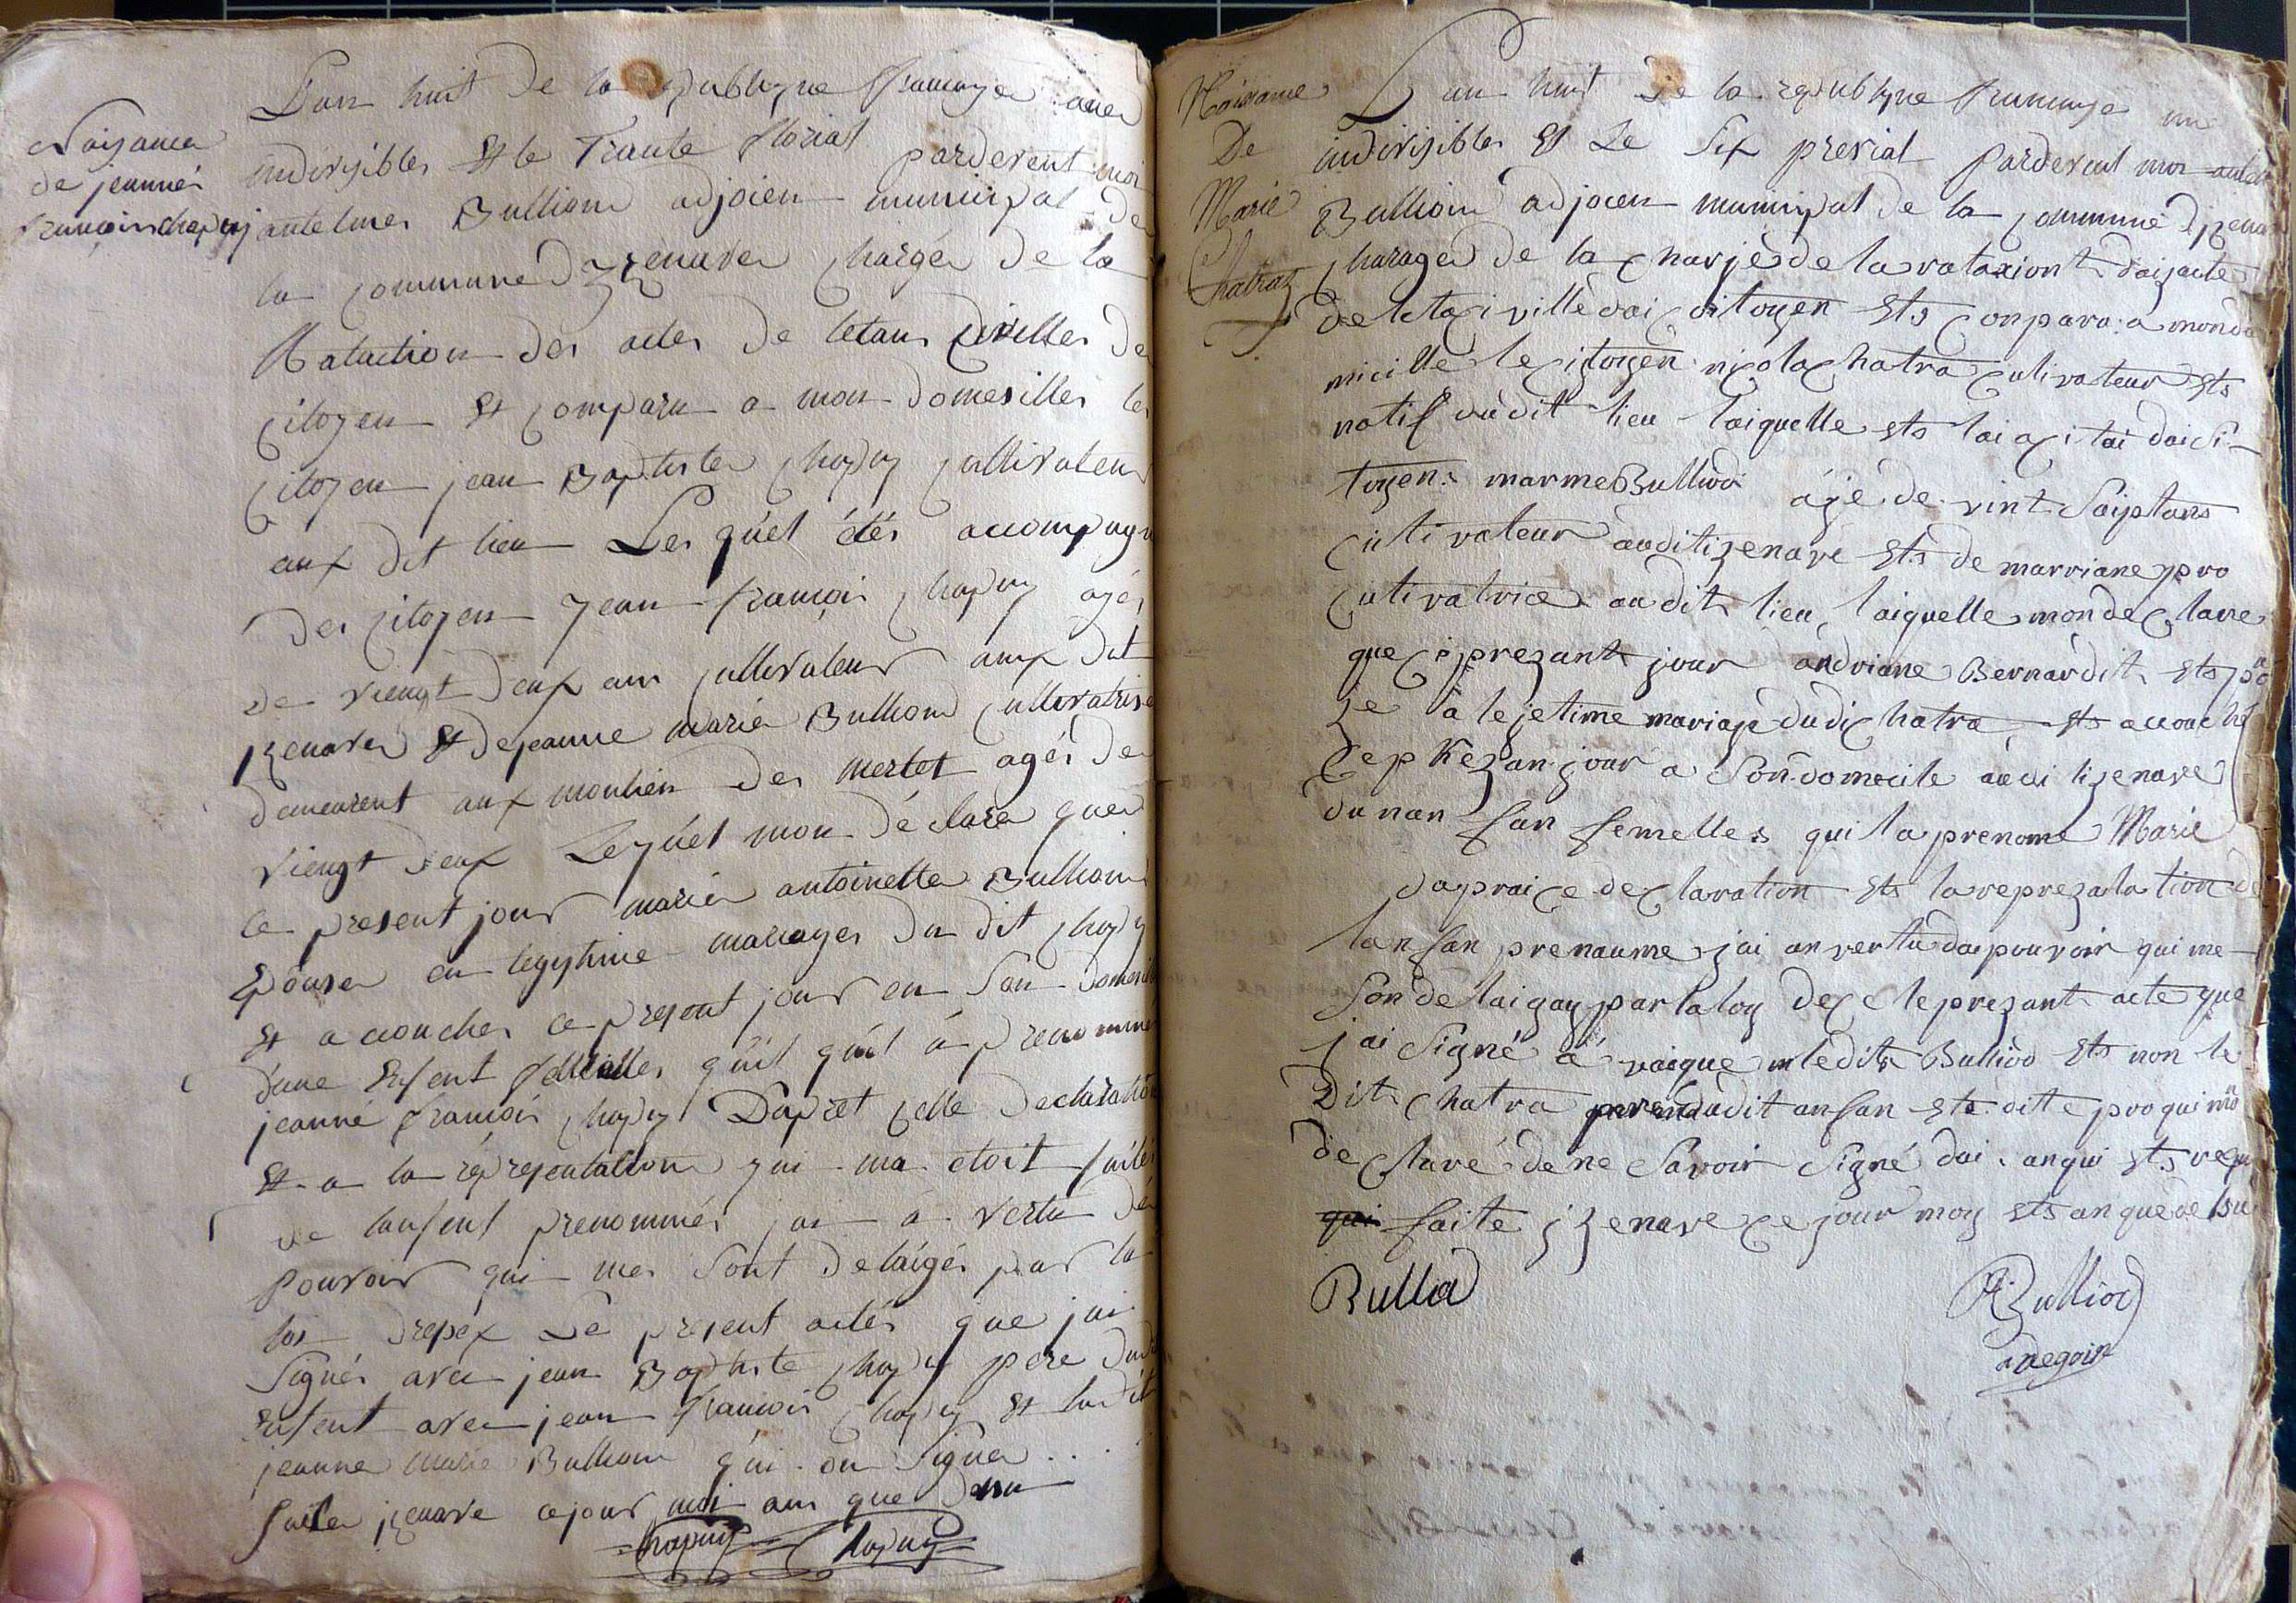 Naisance
de jeanne
francois chapuy
Lan huit de la Republyne francayse une
indivisibles Et le Trante florial pardevent moi
antelmes Bulliond adjoien municipal de
la commune Dizenave chargés de la
Rataction des actes de letans civilles des
citoyen Et comparu a mon domesilles les
citoyen jean Baptistes chapuy cultivateur
aux dit lieu Les quel étés accompagn
des citoyen Jean francois chapuy agés
de viengt deux ans cultivateur aux dit
izenaves Et de jeanne marie Bulliond cultivatrise
demeurent aux moulien des mertet agés de
viengt deux Lequel mon déclare que
ce present jour marie antoinette Bulliond
Epouse en legytime mariages du dit chapuy
Et accouches ce present jour en son domesil
dune Enfent femelles quil quil à prenommé
jeanne francois chapuy Dapret celle declaration
Et a la representation qui ma etoit faites
de lenfent prenommés jai a vertu de
pouvoir qui mes sont delaigés par la
loi drepex Le present actés que jai
Signés avec jean Baptiste chapuy pere dudi
Enfent avec jean francois chapuy Et ladit
jeanne marie Bulliond qui on signer ..
faite izenave ce jour moi ans que desu
chapuy chapuy
Naissance
De
Marie
Chatraz
Lan huit de la republyne francayse une
indivisibles Et Le six prerial pardevent moi antelm
Bulliond adjoien municipal de la commune dizenav
charages de la charje de la rataxiont daizacte
de letaxiville dai citoyen Ets conpara a mondo
micille le citoyen nicola chatra cultivateur Ets
natif dudit lieu laiquelle ets lai acitai dai si-
toyen marme Bulliod áje de vint saiptans
cultivateur audit izenave Ets de marriane pro
cutivatrice audit lieu, laiquelle mon declare
que ci prezant jour andriane Bernardit ets époú
ze à lejetime mariaje dudi chatra Ets accouché
cep rezan jour a son domecile audi lizenave
dunan fan femelles qui la prenome Marie
daprai ce declaration Ets la reprezatation de
lanfan prenaume jai an vertu dai pouvoir qui me
son delaigay par la loy dec le prezant acte que
jai signé á vaique mledit Bulliod Ets non le
Dit chatra pere dudit anfan ets dite pro qui mon
declaré de ne savoir signé dai anqui Ets requi
qui faite izenave ce jour moy Ets an que de su
Bullid
Bulliod
adegoint